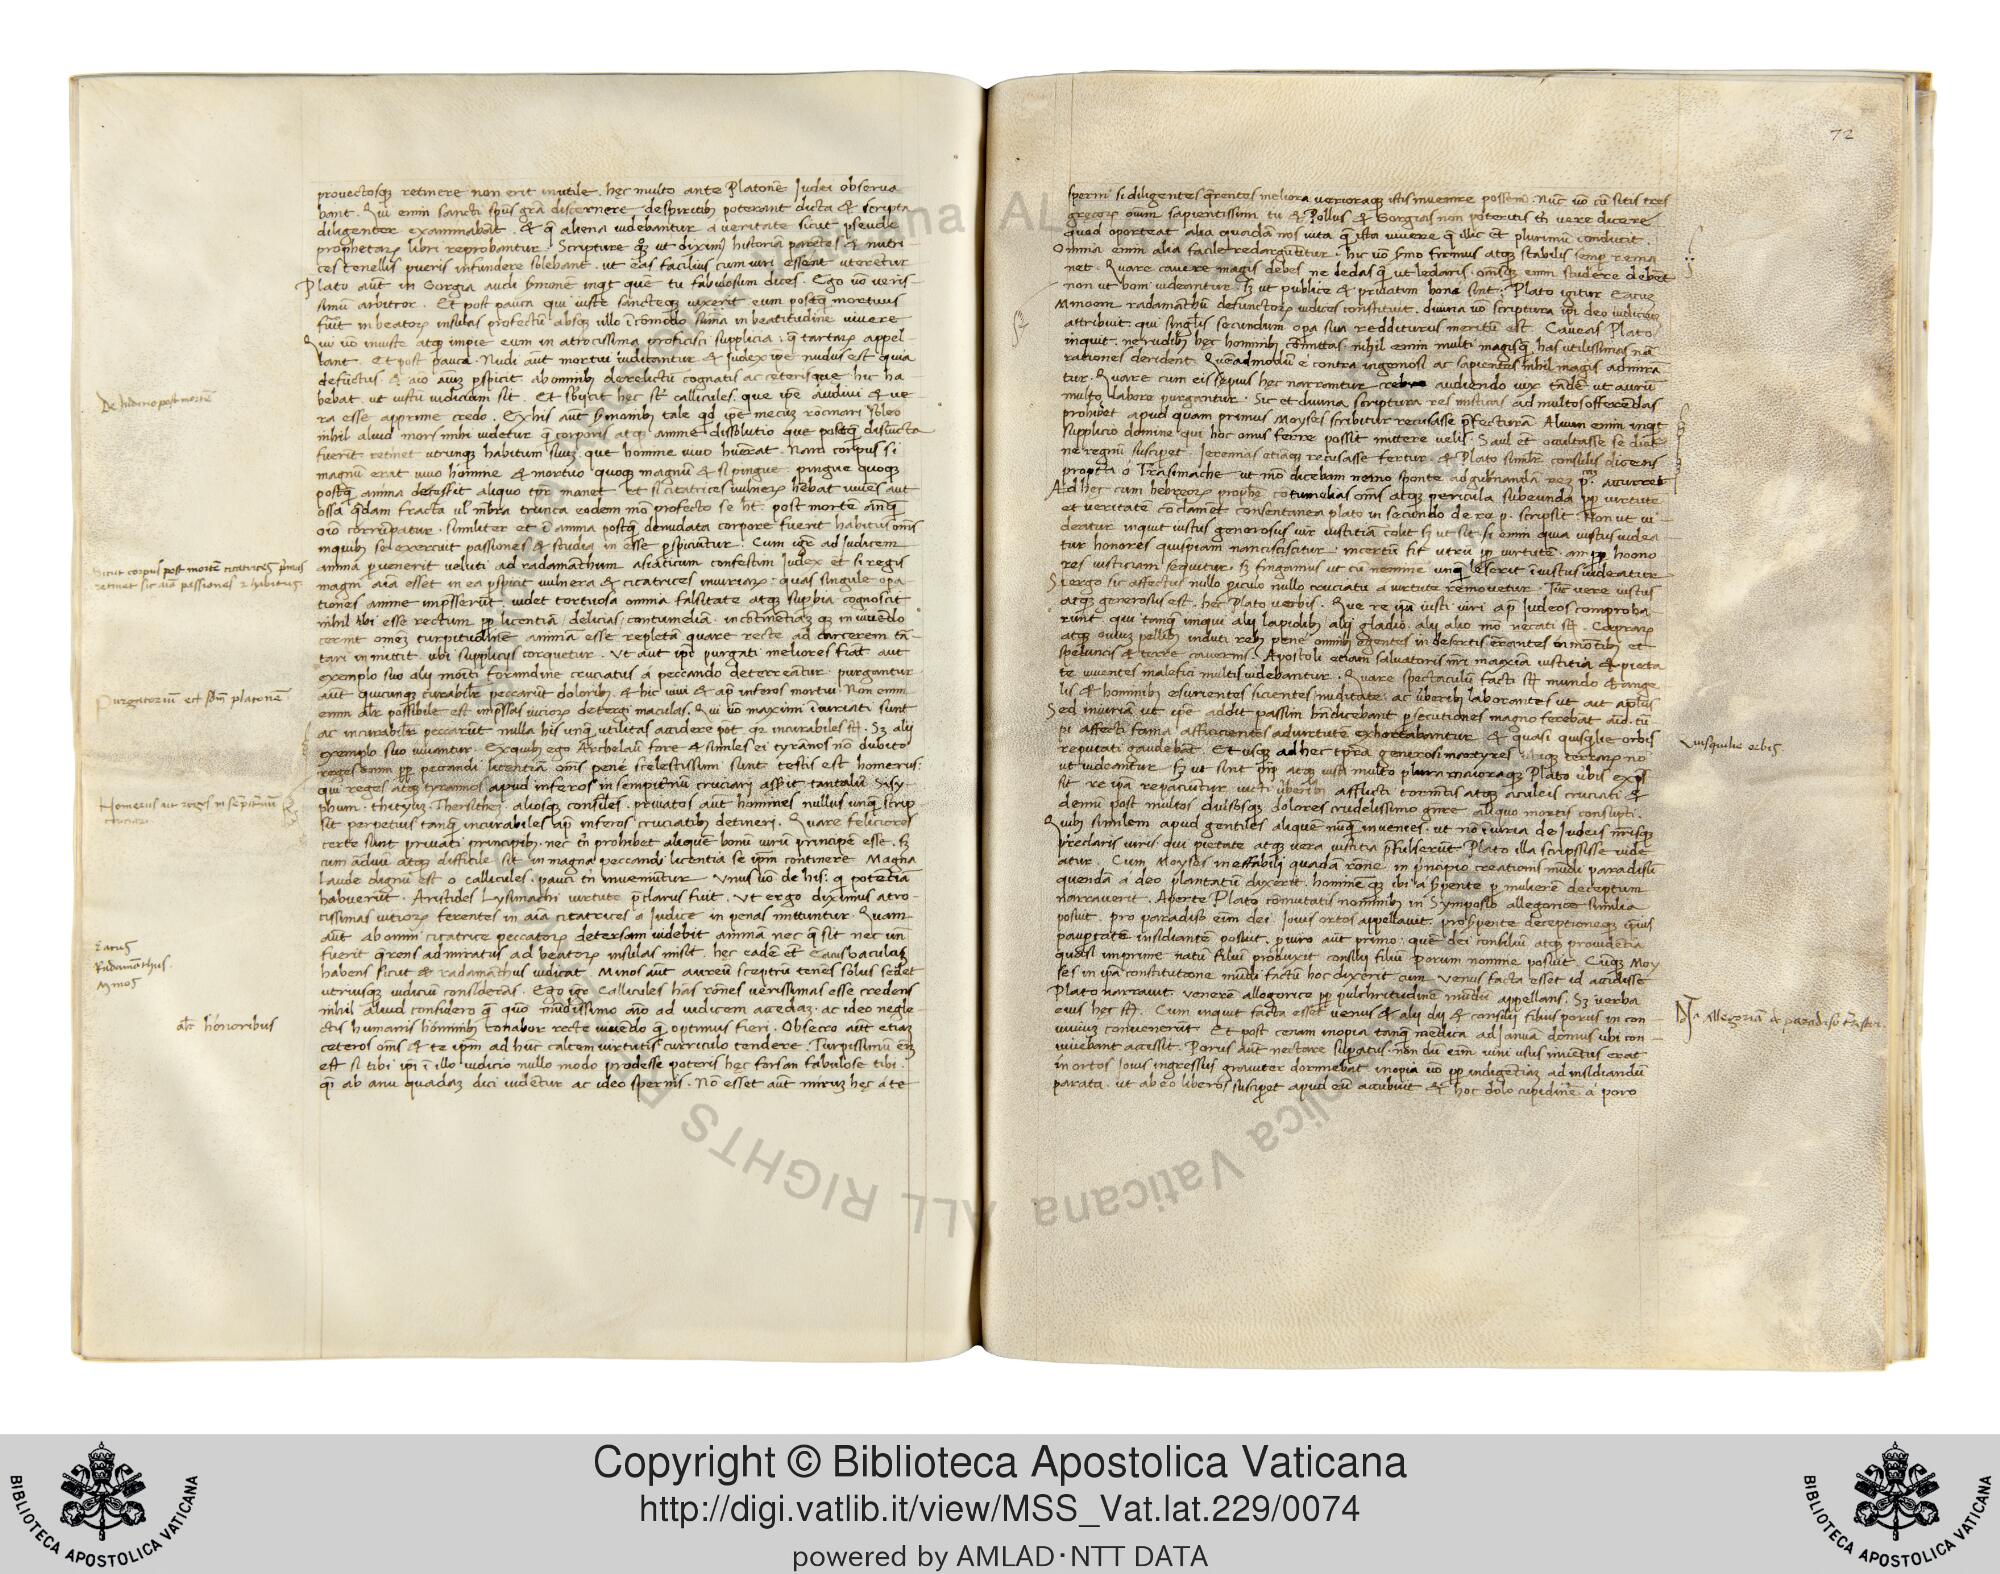 72
prouectosq; retinere non erit inutile. hęc multo ante Platonē Iudei obserua
bant. Qui enim sancti spūs grā discernere despiritib; poterant dicta & scripta
diligenter examinabāt. & q̄ aliena uidebantur a ueritate sicut pseudo
prophetarꝝ libri reprobantur. Scripture ut diximꝰ historiā parētes & nutri
ces tenellis pueris infundere solebant. ut eas facilius cum uiri essent uterētur
Plato aūt in Gorgia audi sermonē inqt quē tu fabulosum dices. Ego uō ueris-
simū arbitror. Et post pauca qui iuste sancteq; uixerit eum postq̄ mortuus
fuīt in beatorꝝ insulas profectū absq; ullo īcōmodo sūma in beatitudine uiuere
Qui uō iniuste atq; impie eum in atrocissima proficisci supplicia: q̄ tartarꝝ appel-
lant. Et post pauca. Nudi aūt mortui iudicantur & Iudex ipe nudus est quia
defūctus. & aīo pspicit ab omnib; derelictū cognatis ac ceterisque hic ha-
bebat. ut iustū iudicium sit. Et sbijcit hęc st̄ callicules. que ipe audiui & ue-
ra esse apprime credo. Ex his aūt sermonib; tale qd̄ ipe mecū rōcinari soleo
nihil aliud mors mihi uidetur q̄ corporis atq; anime dissolutio que postq̄ disiūcta
fuerit retinet utrunq; habitum suū, que homine uiuo huerat. Nam corpus si
magnū erat uiuo homine & mortuo quoq; magnū & si pingue pingue quoq;
postq̄ anima decessit aliquo tpr manet et si cicatrices uulnerꝝ hēbat uiuēs aut
ossa q̄dam fracta ul' mēbra trunca eodem mō profecto se ht̄ post mortē anteq̄
oīo corrūpatur. similiter et ī anima postq̄ denudata corpore fuerit habitus oms
in quib; se exercuit passiones & studia in esse pspiciūtur. Cum igr̄ ad Iudicem
anima puenerit ueluti ad radamāthum asiaticum confestim Iudex et si regis
magni aīa esset in ea pspicit uulnera & cicatrices iniuriarꝝ: quas singule opa-
tiones anime impsserūt, uidet tortuosa omnia falsitate atq; supbia cognoscit
nihil tibi esse rectum pp licentiā, delicias, contumeliā, incōtinētiāq; in uiuēdo
cernit turpitudine animā esse repletā quare recte ad carcerem tā-
tari in mittit ubi supplicijs torquetur. Ut aut ipi purgati meliores fiāt aut
exemplo suo alij moniti formidine cruciatus á peccando deterreātur. purgantur
aūt quicunq; curabilr̄ peccarūt dolorib; & hic uiui & ap̄ inferos mortui. Non enim
enim alr̄ possibile est impssas uiciorꝝ detergi maculas. Qui uō maximi īiuriati sunt
ac incurabilr̄ peccarūt nulla his unq̄ utilitas accidere pōt qr incurabiles st̄. Sz alij
exemplo suo iuuantur. Ex quib; ego Archelaū fore & similes ei tyrānos nō dubito
reges enim pp peccandi licentiā oms pené scelestissimi sunt testis est homerus:
qui reges atq; tyrannos apud inferos in sempitnū cruciari asserit tantalū Sisy-
phum. thicyū. Thersithē aliosq; consiles. priuatos aūt homines nullus unq̄ scrip
sit perpetuis tanq̄ incurabiles ap̄ inferos cruciatib; detineri. Quare feliciores
certe sunt priuati principib; nec tn̄ prohibet aliquē bonū uirū principē esse. sz
cum arduū atq; difficile sit in magna peccandi licentia se ipm continere Magna
laude dignū est o callicules. pauci tn̄ inueniūtur Unus uō de his: q̄ potētiā
habuerūt. Aristides Lysimachi uirtute p̄clarus fuit. Ut ergo diximus atro-
cissimas uitiorꝝ ferentes in aīa cicatrices a Iudice in penas mittuntur. Quam
aūt ab omni cicatrice peccatorꝝ detersam uidebit animā nec q̄ sit nec un̄
fuerit q̄rens admiratus ad beatorꝝ insulas misit. hęc eadē et Eacus baculū
habens sicut & radamāthus iudicat. Minos aūt aureū sceptrū tenēs solus sedet
utriusq; iudiciū considerās. Ego igr̄ Callicules has rōnes uerissimas esse credens
nihil aliud considero q̄ quō mūdissimo aīo ad iudicem accedā. ac ideo negle-
ctis humanis hominib; conabor recte uiuēdo q̄ optimus fieri. Obsecro aūt etiā
ceteros oms & te ipm ad huc calcem uirtutis curriculo tendere. Turpissimū
est si tibi ipi ī illo iudicio nullo modo prodesse poteris hęc forsan fabulose tibi
q̄ ab anu quadā dici uidētur ac ideo spernis. Nō esset aūt mirū hęc á te
De Iudicio post mortē
Sicut corpus post mortē cicatrices primas
retinet sic aīa passiones & habitus
Purgatoriū est scdm platonē
Homerus ait reges in sempitnū
cruciari
Eacus
Radamāthus.
Minos
alr̄ honoribus
sperni si diligentes q̄rentes meliora uerioraq; istis inuenire possem. Nūc uō cū sitis tres
grecorꝝ oium sapientissimi tu & Pollus & Gorgias non poteritis tn̄ uere dicere
quod oporteat alia quadā nos uita q̄ ista uiuere q̄ illic et plurimū conducit.
Omnia enim alia facile redarguūtur: hic uō sermo firmus atq; stabilis semp rema
net. Quare cauere magis debes ne ledas q̄ ut ledaris. omisq; enim studere debēt
non ut boni uideantur. sz ut publice & priuatim boni sint. Plato igitur Eacū
Minoem radamāthū defunctorꝝ iudices constituit. diuina uō scriptura ipi deo iudiciū
attribuit. qui singlis secundum opa sua redditurus meritū est. Caueas Plato
inquit. ne rudib; hęc hominib; cōmittas. nihil enim multi magisq̄ has utilissimas nā
rationes derident. Quēadmodū e contra ingenosi ac sapientes nihil magis admira
tur. Quare cum eis sepius hęc narrantur crebro audiendo uix tādē ut aurū
multo labore purgantur. Sic et diuina scriptura res misticas ad multos offerēdas
prohibet apud quam primus Moyses scribitur recusasse p̄fecturā Alium enim inqt
supplicio domine qui hoc onus ferre possit mittere uelis. Saul et occultasse se dicit
ne regnū suscipet. Ieremias recusasse fertur. & Plato similr̄ consulis dicens
propt̄a ó Trasimache ut mō dicebam nemo sponte ad gubnandā rēp. cā accurret
Ad hęc cum hebreorꝝ prophē cōtumelias oms atq; pericula subeunda pp uirtutē
et ueritatē cōclamēt consentanea plato in secundo de re p. scripsit. Non ut ui-
deatur inquit iustus generosus uir iustitiā colit sz ut sit. si enim quia iustus uidea-
tur honores quispiam nanciscitur. incertū fit utrū pp uirtutē. an pp hono
res iusticiam sequitur. sz fingamus ut cū nemine unq̄ leserit īiustus uideatur
Si ergo sic affectus nullo piculo nullo cruciatu a uirtute remouetur. Tūc uere iustus
atq; generosus est. hęc Plato uerbis. Que re ipa iusti uiri ap̄ Iudeos comproba-
runt, qui tanq̄ iniqui alij lapidib; alij gladio. alij alio mō necati st̄. Caprarꝝ
atq; ouiū pellib; induti reb; pene omnib; egentes in desertis errantes in mōtib; et
speluncis & terre cauernis. Apostoli etiam saluatoris nri maxima iustitia & pieta
te uiuentes malefici multis uidebantur. Quare spectaculū facti st̄ mundo & ange
lis & hominib; esurientes sicientes nuditate: ac uberib; laborantes ut ait aplūs
Sed iniuriā ut ipe addit passim bn̄dicebant psecutiones magno ferebāt aīo. tur
pi affecti fama afficientes ad uirtutē exhortabantur & quasi quisq̄lie orbis
reputati gaudebāt. Et usq; ad hęc tpra generosi martyres ubiq; terrarꝝ nō
ut uideantur sz ut sint pij atq; iusti multo plura maioraq; Plato ubis exp̄ssit
sit re ipa repatiūtur iusti uberib; afflicti tormētis atq; aculeis cruciati &
demū post multos diuersosq; dolores crudelissimo gn̄re aliquo mortis consūpti.
Quib; similem apud gentiles aliquē nūq̄ inuenies. ut nō iniuria de Iudeis nrīsq;
preclaris uiris qui pietate atq; uera iustitia p̄fulserūt Plato illa scripsisse uide
atur. Cum Moyses ineffabili quadā rōne in principio creationis mūdi paradisū
quendā á deo plantatū dixerit. hominēq; ibi á serpente p mulierē deceptum
narrauerit. Aperte Plato comutatis nominib; in Symposio allegorice similia
posuit. pro paradiso eīm dei Iouis ortos appellauit. pro serpente deceptioneq; ipsius
paupertatē insidiantē posuit. p uiro aūt primo: quē dei consiliū atq; prouidentia
quasi imprime natū filiū produxit consilij filiū porum nomine posuit. Cūq; Moy
ses in ipa constitutione mūdi factū hoc dixerit cum Venus facta esset id accidisse
Plato narrauit. uenerē allegorice pp pulchritudinē mūdū appellans. Sz uerba
eius hęc st̄. Cum inquit facta esset uenus & alij dij & consilij filius porus in con
uiuiū conuenerūt Et post cenam inopia tanq̄ mēdica ad Ianuā domus ubi con-
uiuebant accessit. Porus aūt nectare supatus. nōdū eīm uini usus inuētus erat
in ortos Iouis ingressus grauiter dormiebat inopia uō pp indigentiā ad insidiandū
parata. ut ab eo liberos susciperet apud eū accubuit & hoc dolo cupidinē á poro
Quisquilie orbis
Nota Allegoriā de paradiso
Copyright © Biblioteca Apostolica Vaticana
http://digi.vatlib.it/view/MSS_Vat.lat.229/0074
powered by AMLAD·NTT DATA
BIBLIOTECA APOSTOLICA VATICANA
BIBLIOTECA APOSTOLICA VATICANA